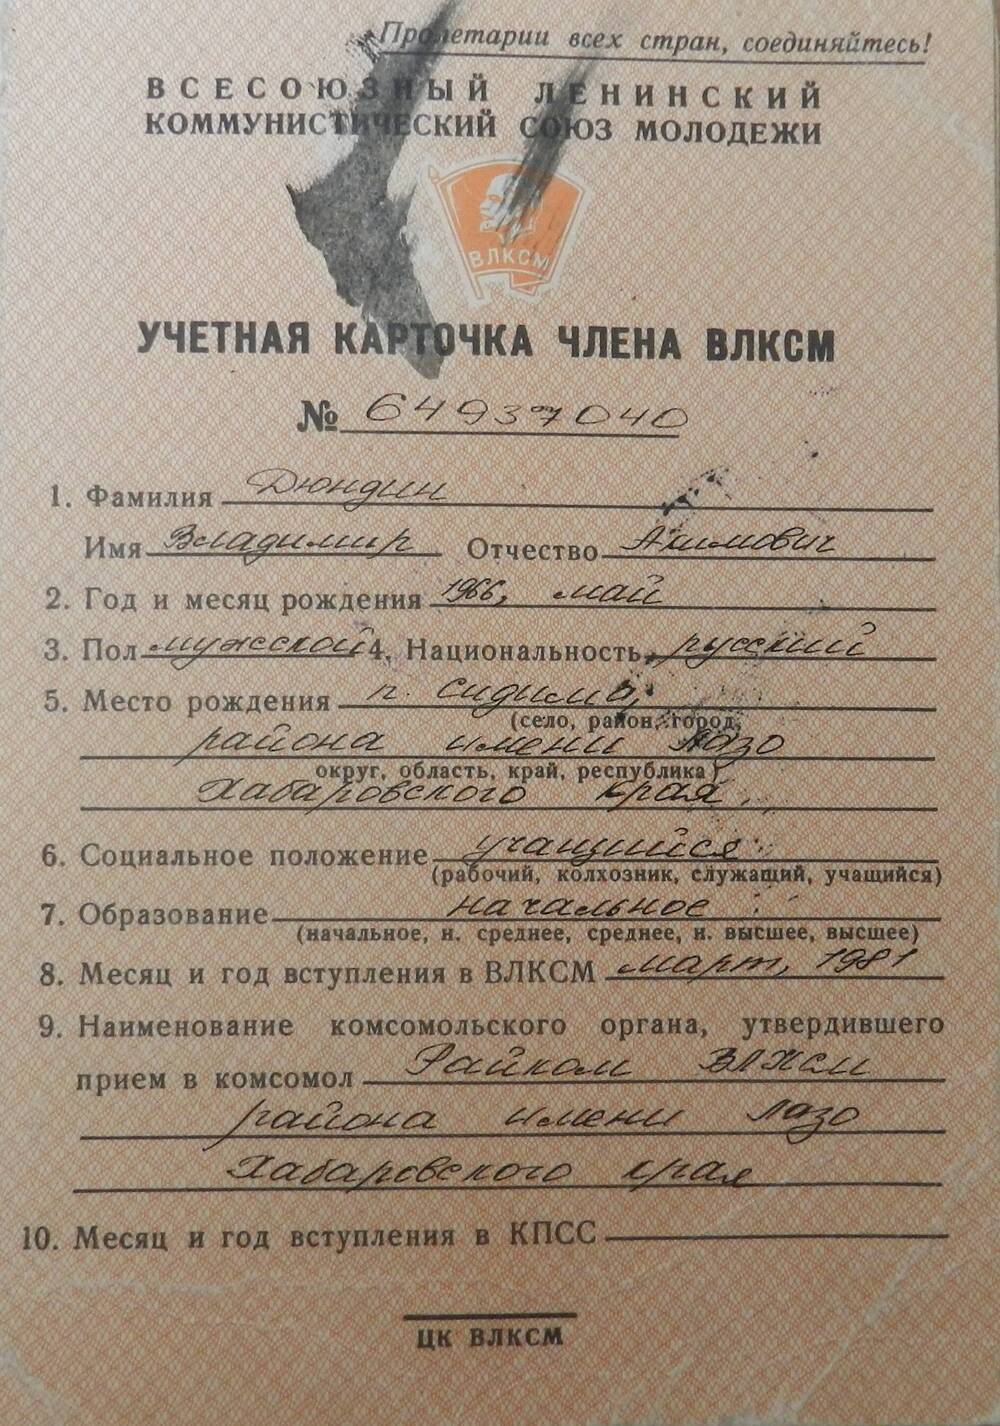 Пролетарии всех стран, соединяйтесь!
ВСЕСОЮЗНЫЙ ЛЕНИНСКИЙ
КОММУНИСТИЧЕСКИЙ СОЮЗ МОЛОДЕЖИ
ВЛКСМ
УЧЕТНАЯ КАРТОЧКА ЧЛЕНА ВЛКСМ
№ 64937040
1. Фамилия Дюндин
Имя Владимир Отчество Акимович
2. Год и месяц рождения 1966, май
3. Пол мужской 4. Национальность русский
5. Место рождения п. Сидима,
(село, район, город,
района имени Лазо
округ, область, край, республика)
Хабаровского края.
6. Социальное положение учащийся
(рабочий, колхозник, служащий, учащийся)
7. Образование начальное
(начальное, н. среднее, среднее, н. высшее, высшее)
8. Месяц и год вступления в ВЛКСМ март, 1981
9. Наименование комсомольского органа, утвердившего
прием в комсомол Райком ВЛКСМ
района имени Лазо
Хабаровского края
10. Месяц и год вступления в КПСС
ЦК ВЛКСМ